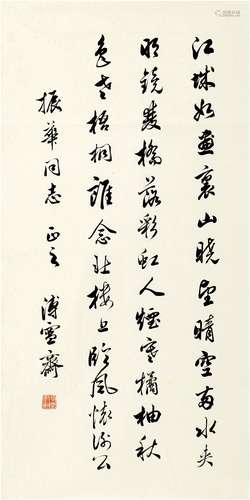 江城如畫裏山曉望晴空兩水夾
明鏡雙橋落彩虹人煙寒橘柚秋
色老梧桐誰念北樓上臨風懷謝公
振華同志正之 溥雪齋